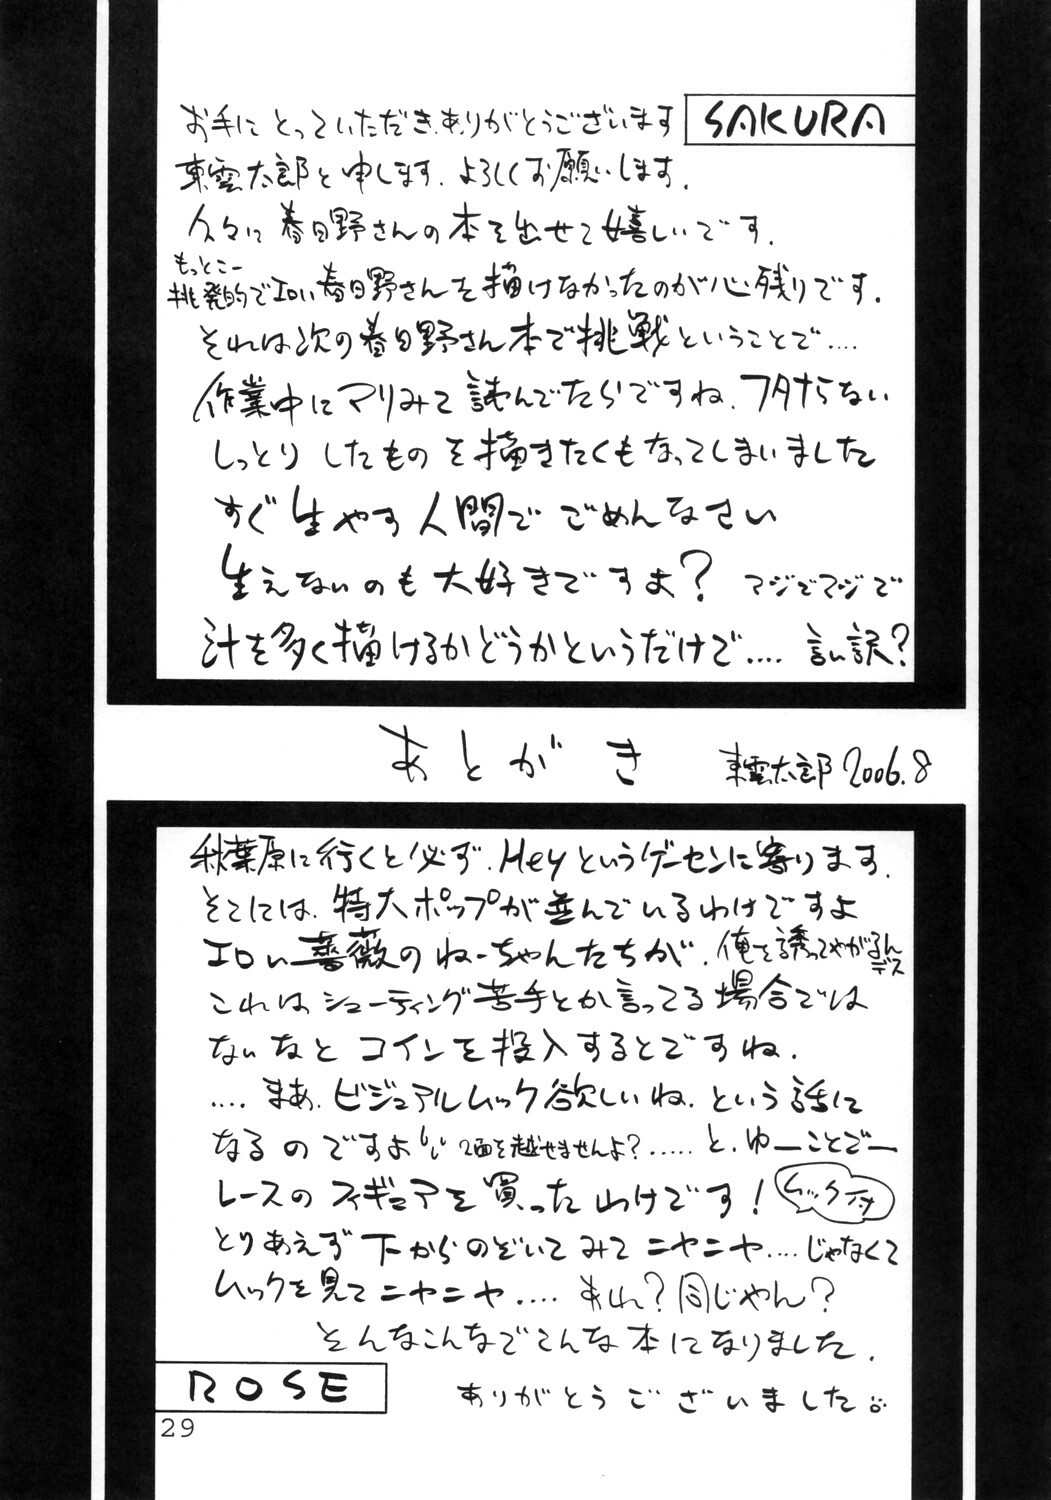 SAKURA
お手にとっていただき、ありがとうございます
東雲太郎と申します。よろしくお願いします。
久々に春日野さんの本を出せて嬉しいです。
もっとこー
挑発的でエロい春日野さんを描けなかったのが心残りです。
それは次の春日野さん本で挑戦ということで‥‥
作業中にマリみて読んでたらですね、フタナらない
しっとりしたものを描きたくもなってしまいました
すぐ生やす人間でごめんなさい
生えないのも大好きですよ? マジでマジで
汁を多く描けるかどうかというだけで‥‥ 言い訳?
あとがき 東雲太郎 2006.8
秋葉原に行くと必ず、Heyというゲーセンに寄ります。
そこには、特大ポップが並んでいるわけですよ
エロい薔薇のねーちゃんたちが、俺を誘ってやがるん
デス
これはシューティング苦手とか言ってる場合では
ないなと コインを投入するとですね、
‥‥まあ、ビジュアルムック欲しいね、という話に
なるのですよ 2面を越せませんよ?‥‥‥と、ゆーことでー
レースのフィギュアを買ったわけです! ムック付
とりあえず下からのぞいてみてニヤニヤ‥‥じゃなくて
ムックを見てニヤニヤ‥‥ あれ?同じやん?
そんなこんなでこんな本になりました。
ありがとうございました
ROSE
29